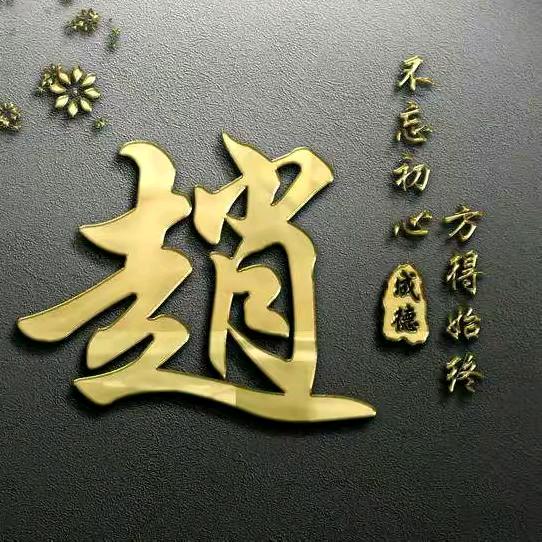 趙
不忘初心
方得始终
成德